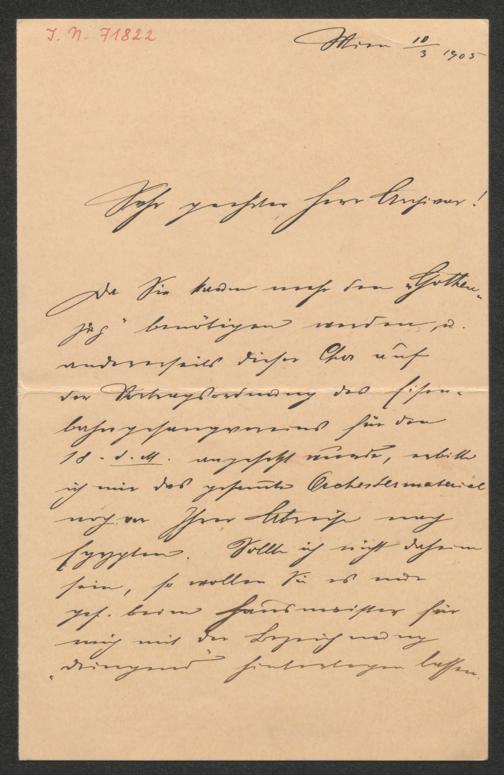 I. N. 71822
Wien 10/3 1905
Sehr geehrter Herr Archivar!
Da Sie kaum mehr den „Gothen-
zug" benötigen werden, u.
andererseits dieser Chor auf
der Vortragsordnung des Eisen-
bahngesangvereins für den
18. d. M. angesetzt wurde, erbitte
ich mir das gesamte Orchestermaterial
noch vor Ihrer Abreise nach
Egypten. Sollte ich nicht daheim
sein, so wollen Sie es nur
gef. beim Hausmeister für
mich mit der Bezeichnung
„dringend" hinterlegen lassen.